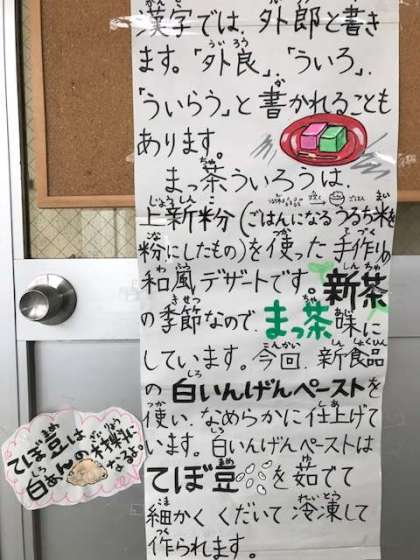 漢字では、外郎と書き
ます。「外良」、「ういろ」、
「ういらう」と書かれることも
あります。
まっ茶ういろうは、
上新粉（ごはんになるうるち米を
粉にしたもの）を使った手作りの
和風デザートです。新茶
の季節なので、まっ茶味に
しています。今回、新食品
の白いんげんペーストを
使い、なめらかに仕上げて
います。白いんげんペーストは
てぼ豆を茹でて
細かくくだいて冷凍して
作られます。
てぼ豆は
白あんの材料に
なるよ。